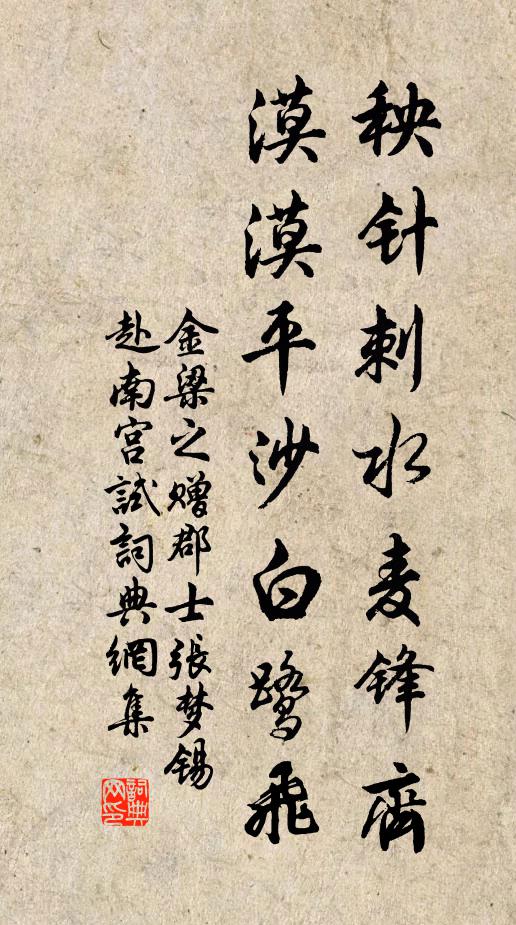 秧针刺水麦锋齊
漠漠平沙白鹭飛
金梁之赠郡士張梦锡
赴南宫試詞典網集
詞典网印